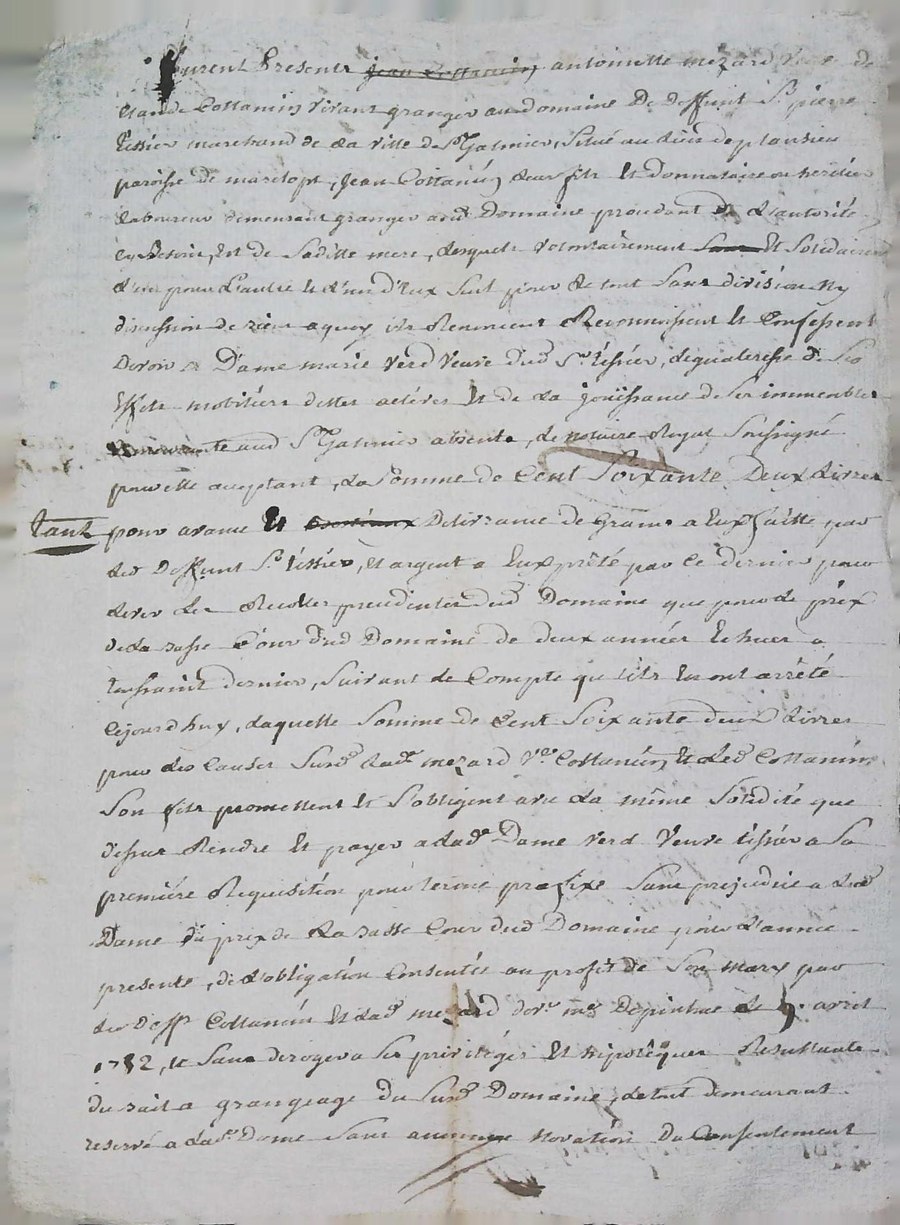 furent Presents jean Costamin antoinette mezard Veuve de
Claude Costamin vivant granger au domaine De deffunt Sr pierre
tissier marchand de la ville de St Galmier, Situé au lieu de
paroisse de jean Costanin leur fils Et donnataire ou heritier
Laboureur demeurant granger aud Domaine de L'autorité
Est de Saditte mere, Lesquels volontairement Et Solidairement
L'un pour L'autre Et d'un d'Eux Seul pour Le tout Sans division Ny
discussion de rien aquoy ils Renoncent Reconnoissent Et Confessent
Devoir a Dame marie Verd Veuve dud Sr tissier, Legataresse de Ses
Effets mobiliers dettes actives Et de La joüissance de Ses immeubles
aud St Galmier absente, Le notaire Royal Soussigné
pour elle acceptant, La Somme de Cent Soixante Deux Livres
tant pour avance Et Delivrance de Grains a Eux faitte par
led Deffunt Sr tissier, Et argent a Eux prêté par Ce dernier pour
Lever Les Recoltes dud Domaine que pour Le prix
de La basse Cour dud Domaine de deux années Echues a
toussaint dernier, Suivant Le Compte qu'ils En ont arrêté
Cejourdhuy, Laquelle Somme de Cent Soixante deux Livres
pour Les Causes Susd Lad mezard Ve Costanin Et Led Costanin
Son fils promettent Et S'obligent avec La même Solidité que
dessus Rendre Et payer a Lad Dame Verd Veuve tissier a Sa
première Requisition pour terme prefixe Sans prejudice a Lad
Dame du prix de La basse Cour dud Domaine pour L'année
presente, de L'obligation Consentie au profit de Son mary par
led deff Costanin Et Lad mezard dvt me Depinhac Le 9 avril
1782, Et Sans deroger a Ses privileges Et hipotêques Resultants
du bail a grangeage du Susd Domaine, Le tout demeurant
reservé a Lad Dame Sans aucune Novation Du Consentement